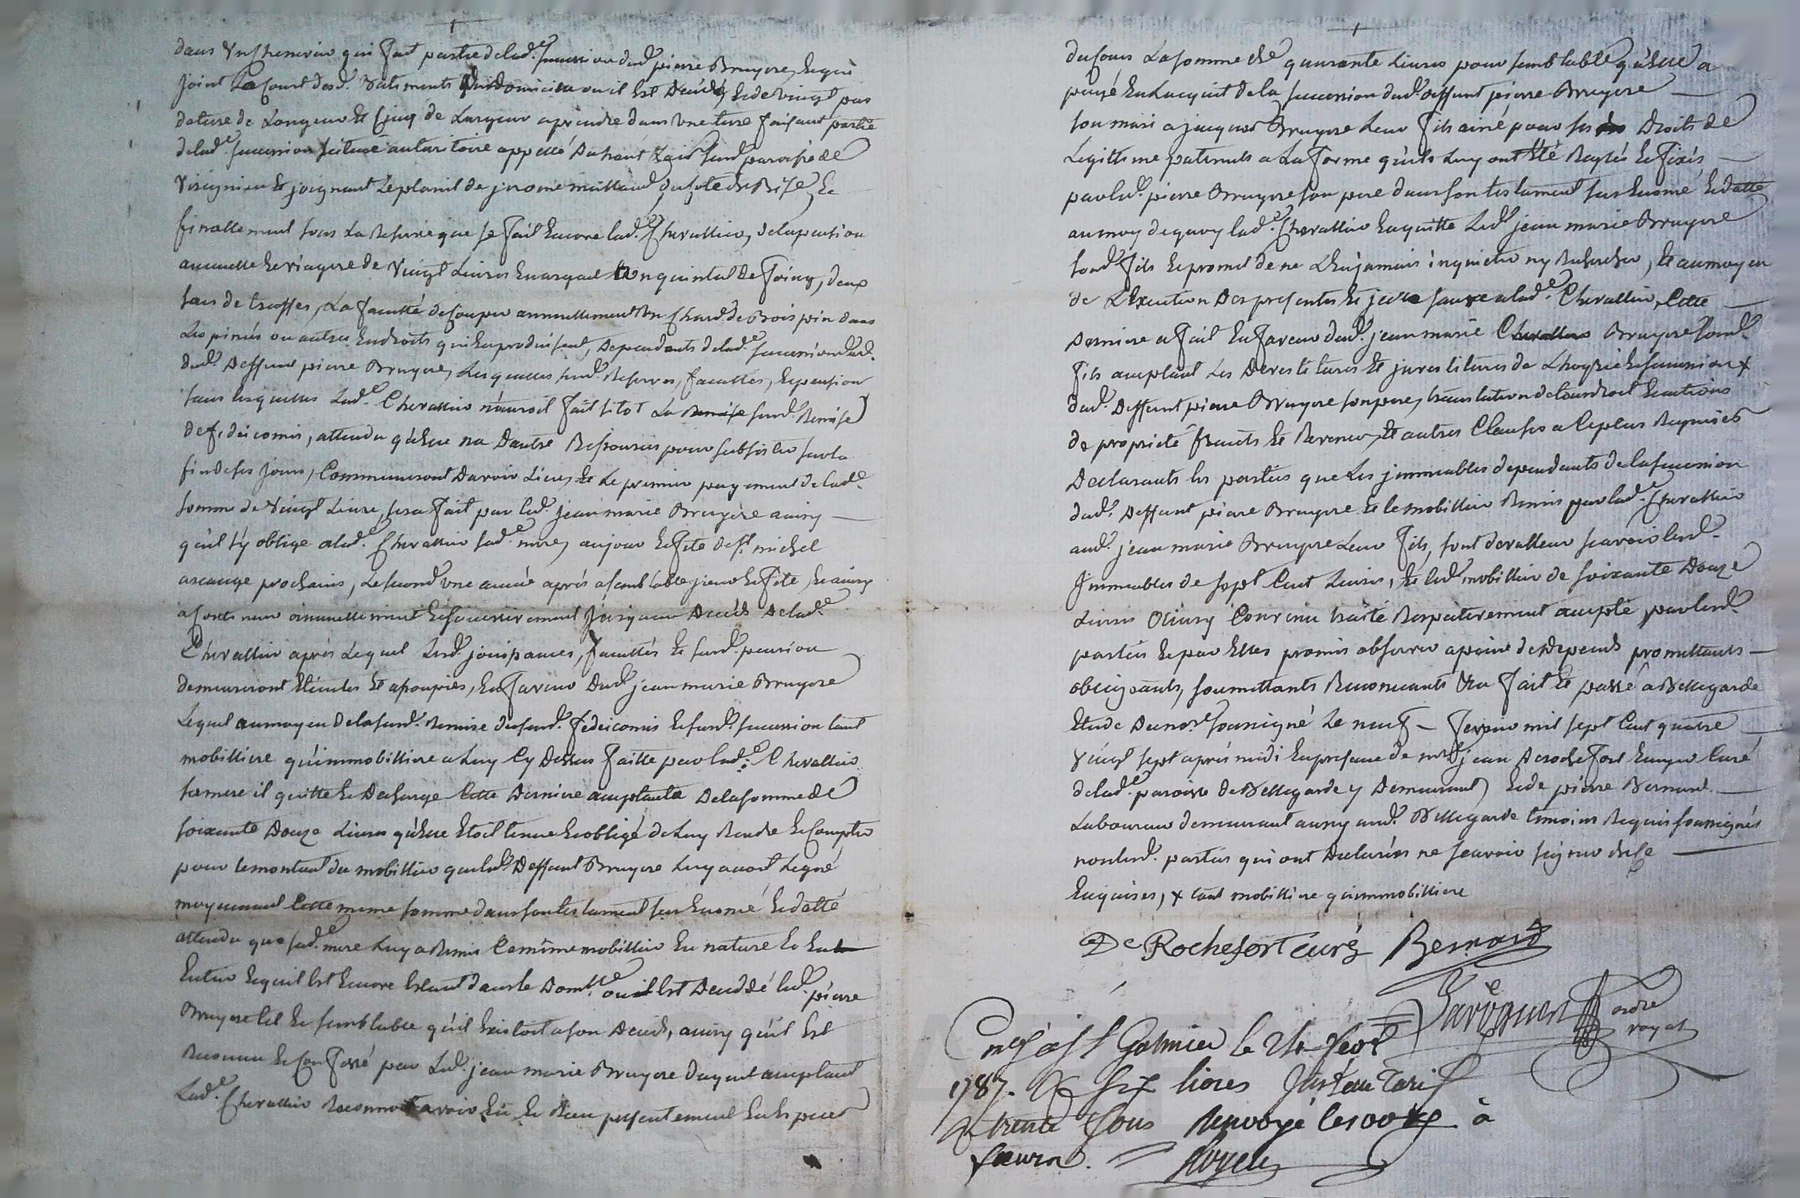 dans un chenevier qui fait partie de lad.e succession dud. pierre Bruyere, lequel
joint la Court desd. Batiments du Domicile ou il est Decedé et de vingt pas
de terre de Longeur et Cinq de Largeur a prendre dans une terre faisant partie
de lad.e succession située au taritoire appellé Duhaut sud. paroisse de
Virignieu et joignant le plant de jerome du Coté de Bise, Et
finallement sous La Reserve que se fait Encore lad.e Chevallier, de la pension
annuelle et viagere de Vingt Livres En argent un quintal de foing, deux
sacs de truffes, La faculté de Couper annuellement un Chard. de Bois pin dans
Les pinés ou autres Endroits qui En produisent, Dependants de lad.e succession
dud. Deffunt pierre Bruyere, Lesquelles susd. Reserves, facultés, et pension
sans lesquelles Lad.e Chevallier n'auroit fait sitot La susd. Remise
de fideicomis, attendu qu'elle na Dautre Ressources pour subsister sur la
fin de ses jours, Commenceront Davoir Lieu, et Le premier payement de lad.e
somme de Vingt Livres, sera fait par led. jean marie Bruyere ainsy
qu'il s'y oblige a lad.e Chevallier sad.e mere, au jour et fete de St. michel
arcange prochain, Le second une année après a semblable jour et fete, et ainsy
a Continuer annuellement et successivement jusqu'au Decès de lad.e
Chevallier après Lequel Lesd. jouissances, facultés et susd. pension
demeureront Eteintes et assoupies, En faveur Dud. jean marie Bruyere
Lequel au moyen de la susd. Remise du susd. fideicomis et susd. succession tant
mobilliere qu'immobilliere a Luy Cy Dessus faitte par lad.e Chevallier
sa mere il quitte et Decharge Cette Derniere acceptante De la somme de
soixante Douze Livres qu'elle Etoit tenue et obligé de Luy Rendre et Compter
pour le montant du mobillier que led. Deffunt Bruyere Luy avoit Legué
moyennant Cette meme somme dans son testament sus Enoncé et datté
attendu que sad.e mere Luy a Remis Ce même mobillier En nature Et En
Entier Lequel Est Encore Existant dans le Dom.lle ou il Est Decedé led. pierre
Bruyere tel et semblable qu'il Existoit a son Decès, ainsy qu'il Est
Reconnu et Confessé par Led. jean marie Bruyere Duquel acceptant
Lad.e Chevallier Reconnoit avoir Eu et Reçu presentement En Especes
du Cours La somme de quarante Livres pour semblable qu'elle a
payé En Lacquit de la succession dud. deffunt pierre Bruyere
son mari a jacques Bruyere Leur fils ainé pour ses Droits de
Legittime paternels a La forme qu'ils Luy ont Eté Reglés et fixés
par led. pierre Bruyere son pere dans son testament sus Enoncé et datté
au moyen de quoy lad.e Chevallier En quitte Led. jean marie Bruyere
sond. fils et promet de ne L'En jamais inquieter ny Rechercher, Et au moyen
de L'Execution Des presentes et a lad.e Chevallier, Cette
Derniere a fait En faveur dud. jean marie Bruyere sond.
fils acceptant Les Devestitures et jnvestitures de L'hoyrie et succession +
dud. Deffunt pierre Bruyere son pere, translation de tous droits et actions
de propriété fruits et Revenus, Et autres Clauses a Ce plus Requises
Declarants les parties que Les jmmeubles dependants de la succession
dud. Deffunt pierre Bruyere et le mobillier Remis par lad.e Chevallier
aud. jean marie Bruyere Leur fils, sont de valleur scavoir lesd.
Jmmeubles de sept Cent Livres, et led. mobillier de soixante Douze
Livres Ainsy Convenu traité Respectivement accepté par lesd.
parties et par Elles promis observer a peine de tous Depends promettants
obligeants, soumettants Renonceants &a fait Et passé a Bellegarde
Etude Du no.re soussigné Le neuf fevrier mil sept Cent quatre
vingt sept après midi En presence de m.re jean De rochefort Ecuyer Curé
de lad.e paroisse de Bellegarde y Demeurant, et de pierre Bernard
Laboureur demeurant aussy aud. Bellegarde temoins Requis soussignés
non lesd. parties qui ont Declarées ne scavoir signer de ce
Enquises, + tant mobilliere qu'immobilliere
De Rochefort Curé Bernard
no.re
royal
C.lé a St Galmier le 21 fevr.
1787. R. six livres Tarif
et trente sous Renvoyé les 00 à